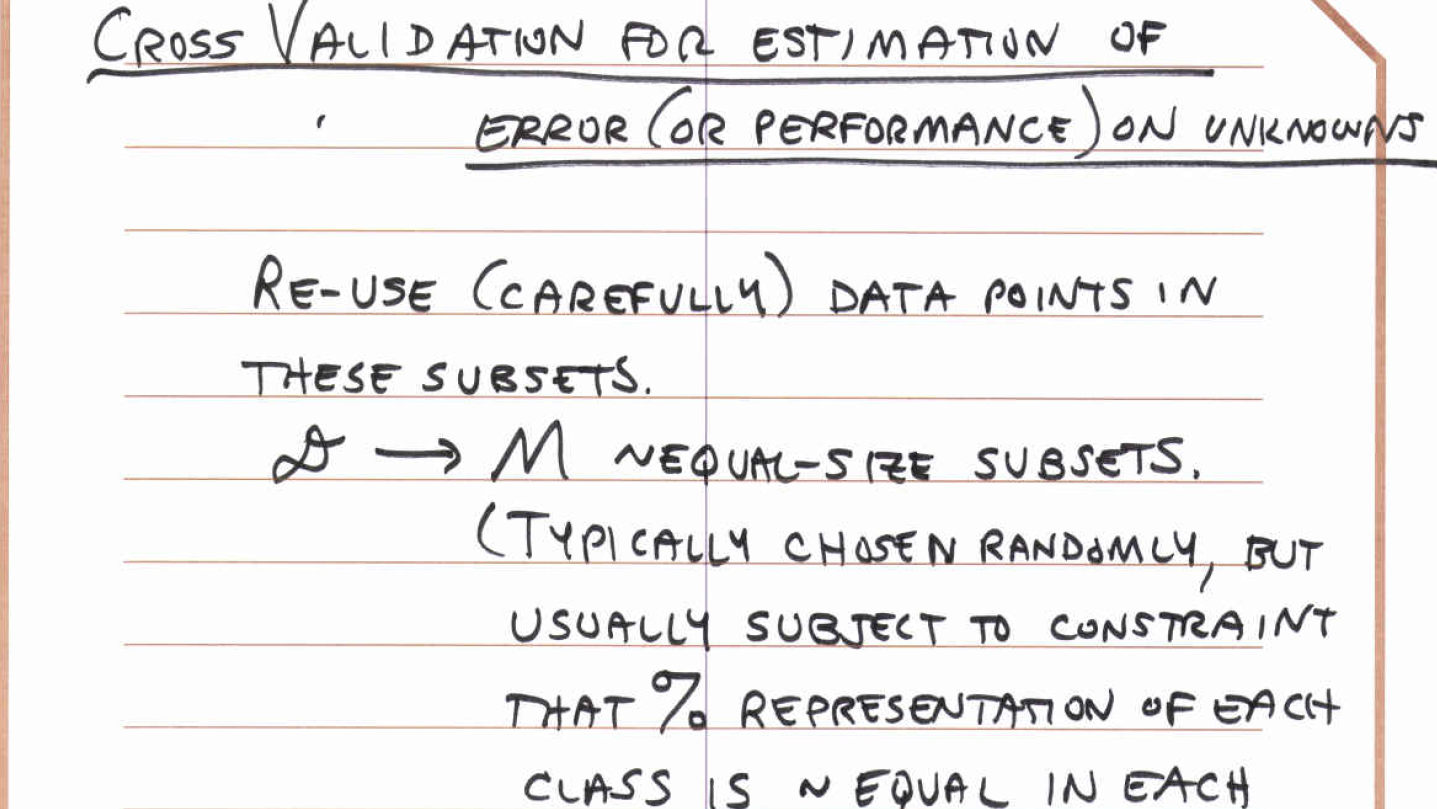 CROSS VALIDATION FOR ESTIMATION OF
ERROR (OR PERFORMANCE) ON UNKNOWNS
RE-USE (CAREFULLY) DATA POINTS IN
THESE SUBSETS.
𝒟 → M ~EQUAL-SIZE SUBSETS.
(TYPICALLY CHOSEN RANDOMLY, BUT
USUALLY SUBJECT TO CONSTRAINT
THAT % REPRESENTATION OF EACH
CLASS IS ~ EQUAL IN EACH